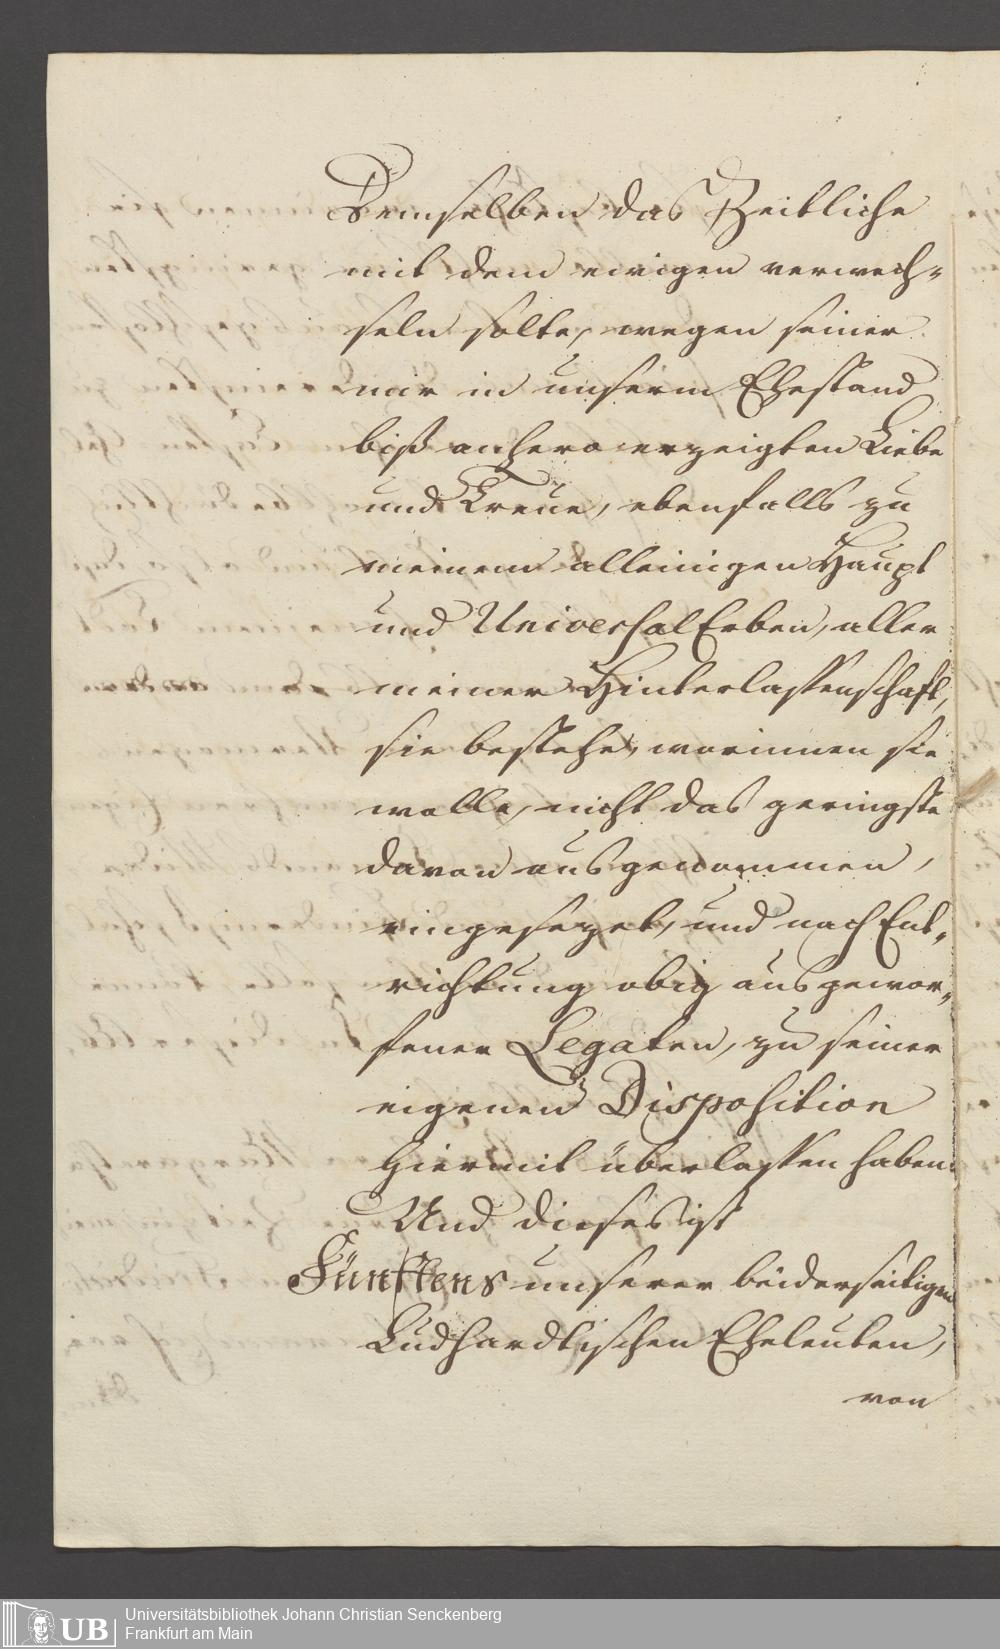 Demselben das Zeitliche
mit dem ewigen verwech-
seln solte, wegen seiner
mir in unserm Ehestand
biß anhero erzeigten Liebe
und Treüe, ebenfalls zu
meinem alleinigen Haupt
und Universal Erben, aller
meiner Hinterlassenschaft,
sie bestehe, worinnen sie
wolle, nicht das geringste
davon ausgenommen,
eingesezet, und nach Ent-
richtung obig ausgewor-
fener Legaten, zu seiner
eigenen Disposition
hiermit überlassen haben.
Und dieses ist
Fünftens unserer beiderseitigen
Ludhardtischen Eheleuten,
von
Universitätsbibliothek Johann Christian Senckenberg
UB Frankfurt am Main